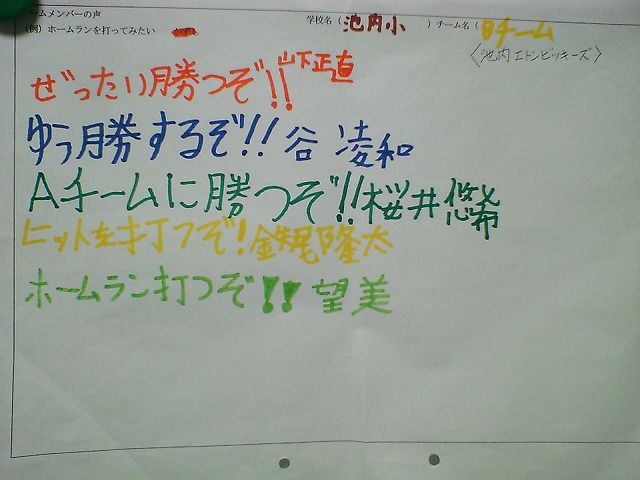 ームメンバーの声
(例)ホームランを打ってみたい
学校名(池内小)チーム名(Bチーム
〈池内エドンビッキーズ〉
ぜったい勝つぞ!!山下正直
ゆう勝するぞ!!谷 凌和
Aチームに勝つぞ!!桜井悠希
ヒットを打つぞ!鉄尾隆太
ホームラン打つぞ!!望美